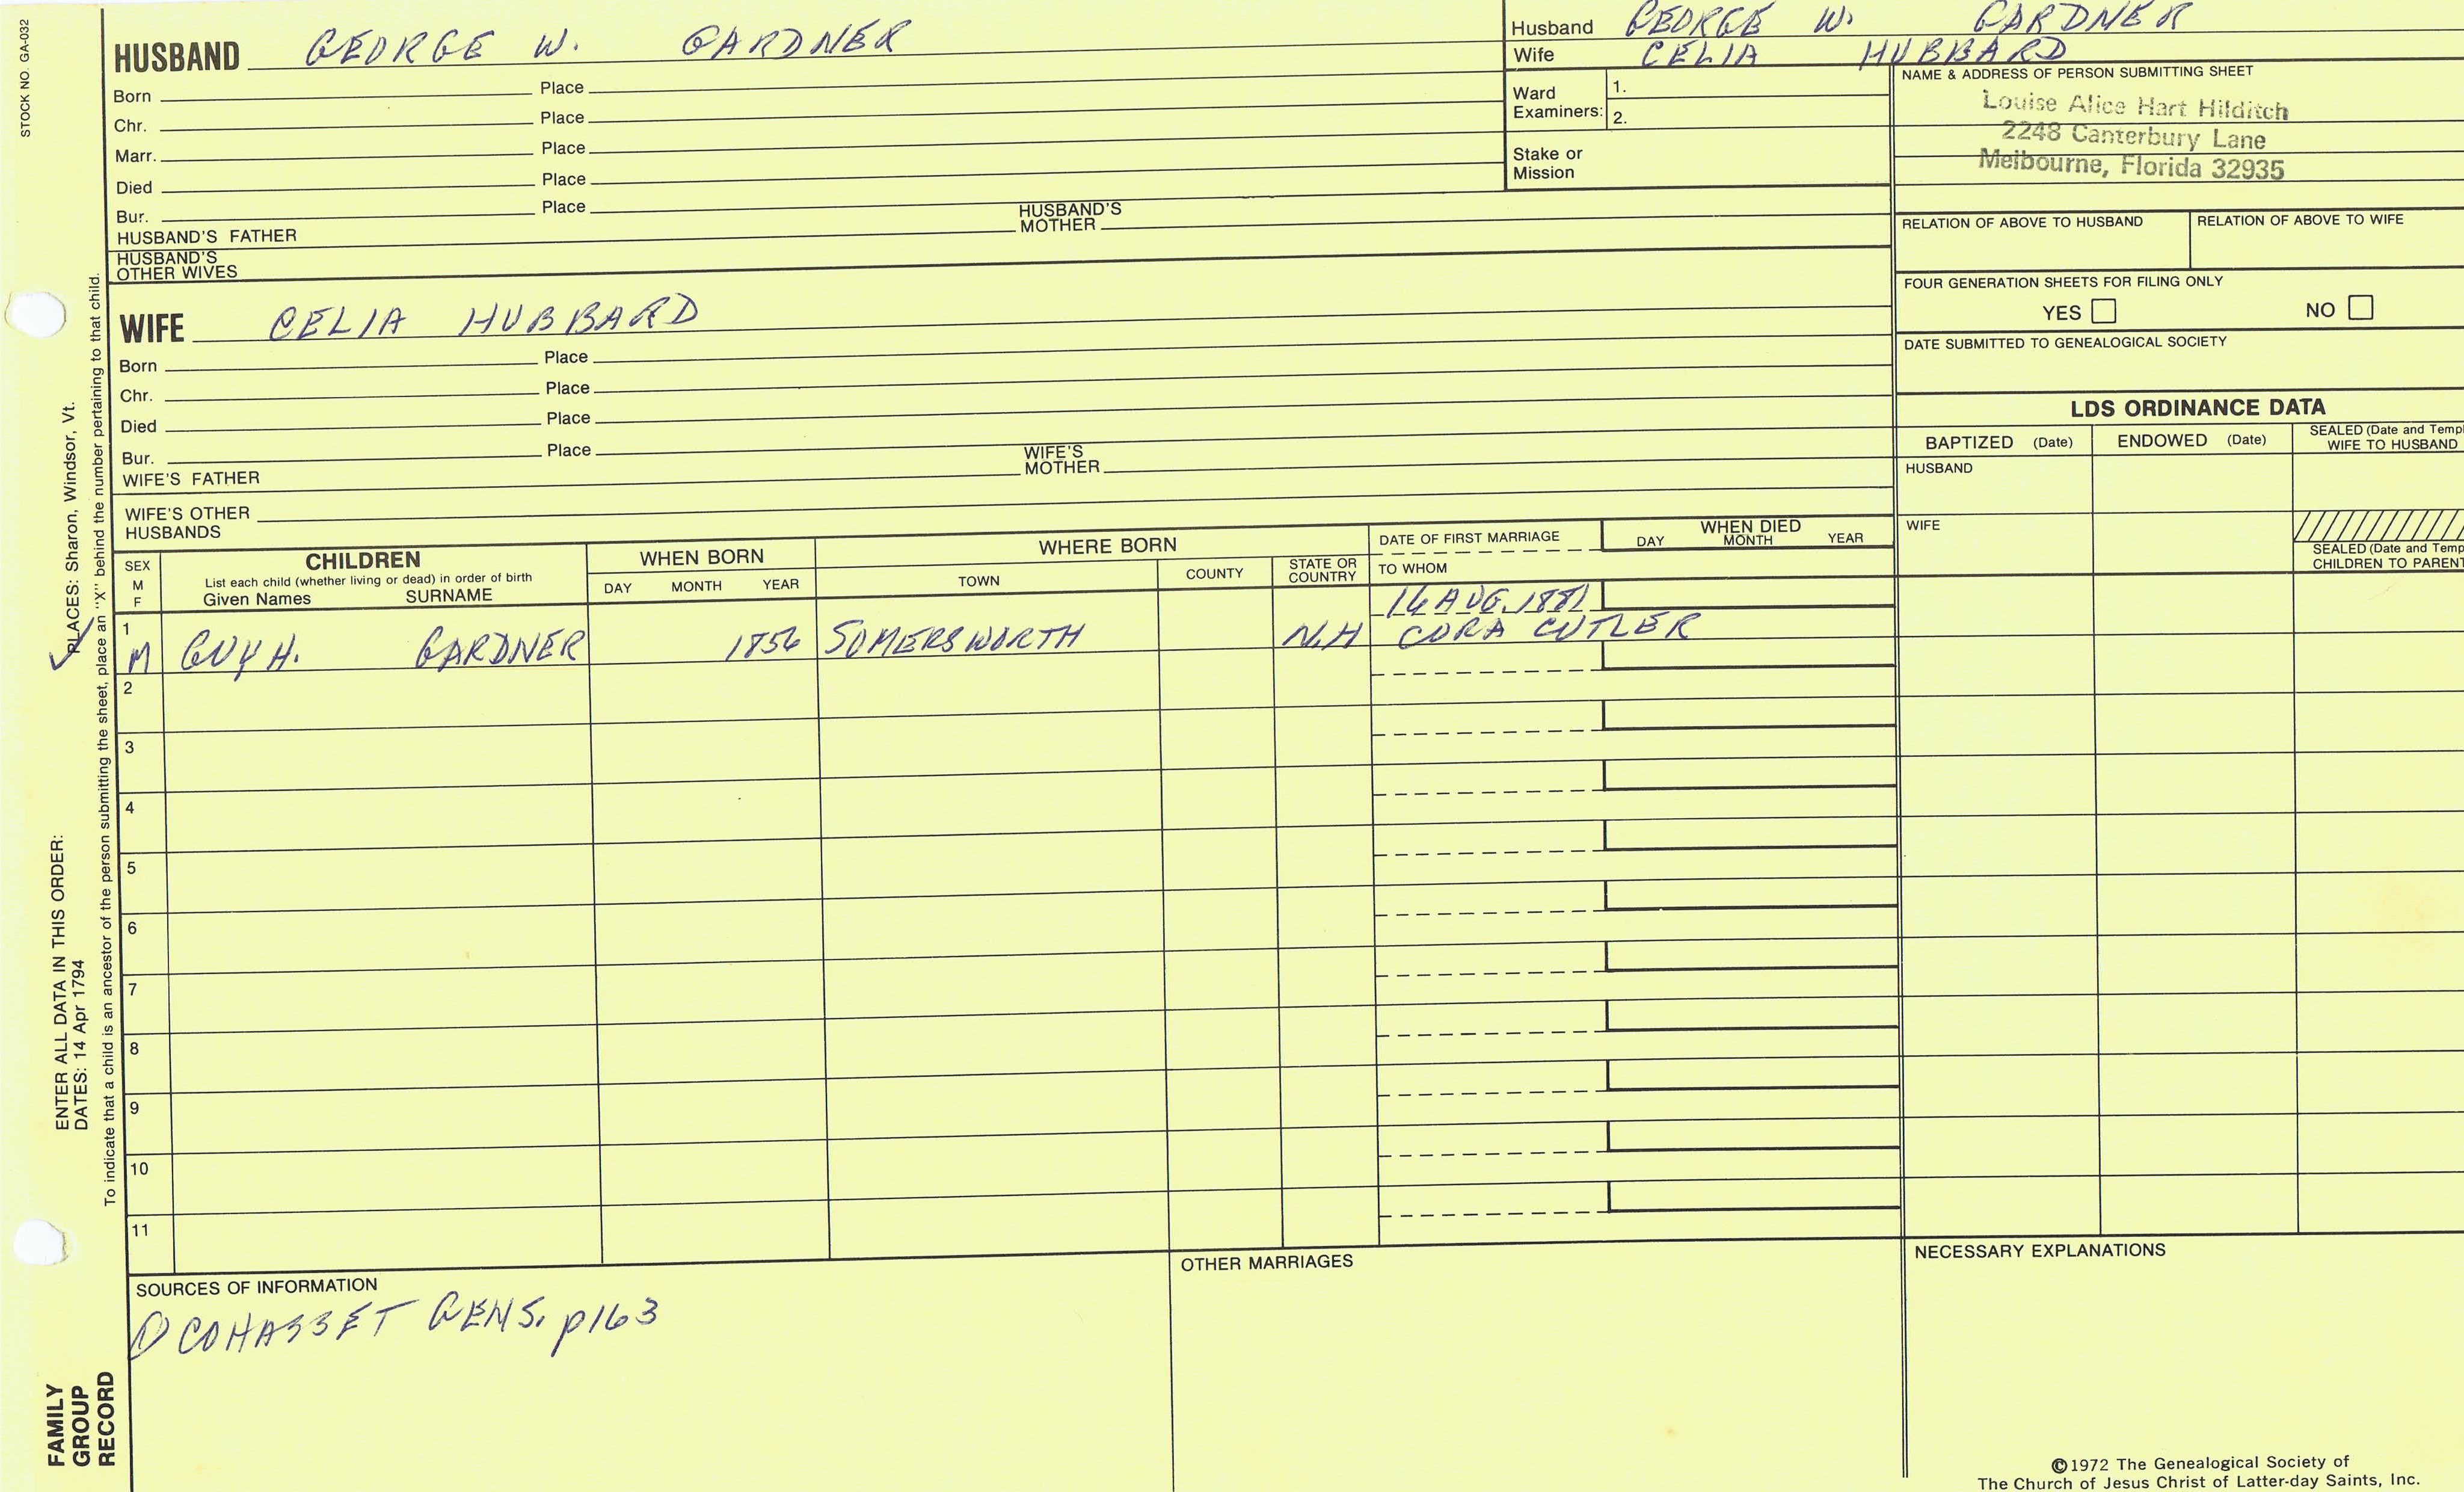 STOCK NO. GA-032
HUSBAND GEORGE W. GARDNER
Born Place
Chr. Place
Marr. Place
Died Place
Bur. Place
HUSBAND'S FATHER HUSBAND'S MOTHER
HUSBAND'S OTHER WIVES
WIFE CELIA HUBBARD
Born Place
Chr. Place
Died Place
Bur. Place
WIFE'S FATHER WIFE'S MOTHER
WIFE'S OTHER HUSBANDS
Husband GEORGE W. GARDNER
Wife CELIA HUBBARD
Ward Examiners: 1.
2.
Stake or Mission
NAME & ADDRESS OF PERSON SUBMITTING SHEET
Louise Alice Hart Hilditch
2248 Canterbury Lane
Melbourne, Florida 32935
RELATION OF ABOVE TO HUSBAND RELATION OF ABOVE TO WIFE
FOUR GENERATION SHEETS FOR FILING ONLY
YES NO
DATE SUBMITTED TO GENEALOGICAL SOCIETY
LDS ORDINANCE DATA
BAPTIZED (Date) ENDOWED (Date) SEALED (Date and Templ
WIFE TO HUSBAND
HUSBAND
WIFE
SEALED (Date and Temp
CHILDREN TO PARENT
SEX M F
CHILDREN
List each child (whether living or dead) in order of birth
Given Names SURNAME
WHEN BORN
DAY MONTH YEAR
WHERE BORN
TOWN COUNTY STATE OR COUNTRY
DATE OF FIRST MARRIAGE
TO WHOM
WHEN DIED
DAY MONTH YEAR
16 AUG. 1881
1 M GUY H. GARDNER 1856 SOMERSWORTH N.H CORA CUTLER
2
3
4
5
6
7
8
9
10
11
SOURCES OF INFORMATION
① COHASSET GENS. p163
OTHER MARRIAGES
NECESSARY EXPLANATIONS
©1972 The Genealogical Society of
The Church of Jesus Christ of Latter-day Saints, Inc.
FAMILY
GROUP
RECORD
ENTER ALL DATA IN THIS ORDER:
DATES: 14 Apr 1794 ✓ PLACES: Sharon, Windsor, Vt.
To indicate that a child is an ancestor of the person submitting the sheet, place an "X" behind the number pertaining to that child.